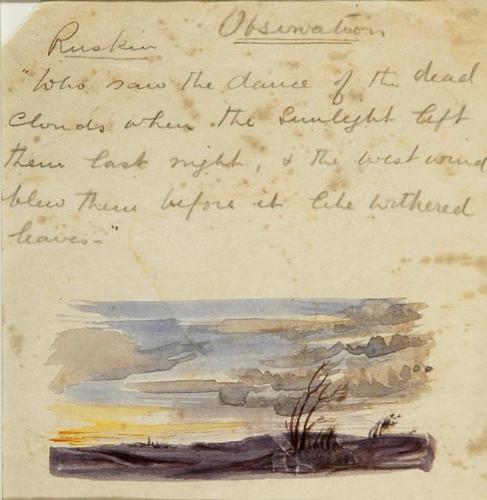 Observation
Ruskin
"Who saw the dance of the dead
clouds when the sunlight left
them last night, & the west wind
blew them before it like withered
leaves -"